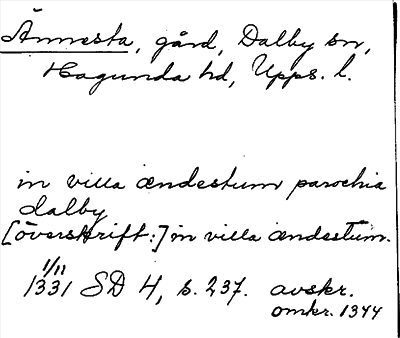 Ännesta, gård, Dalby sn,
Hagunda hd, Upps. l.
in villa ændestum parochia
dalby
[överskrift:] in villa ændestum.
1/11
1331 SD 4, s. 237. avskr.
omkr. 1344